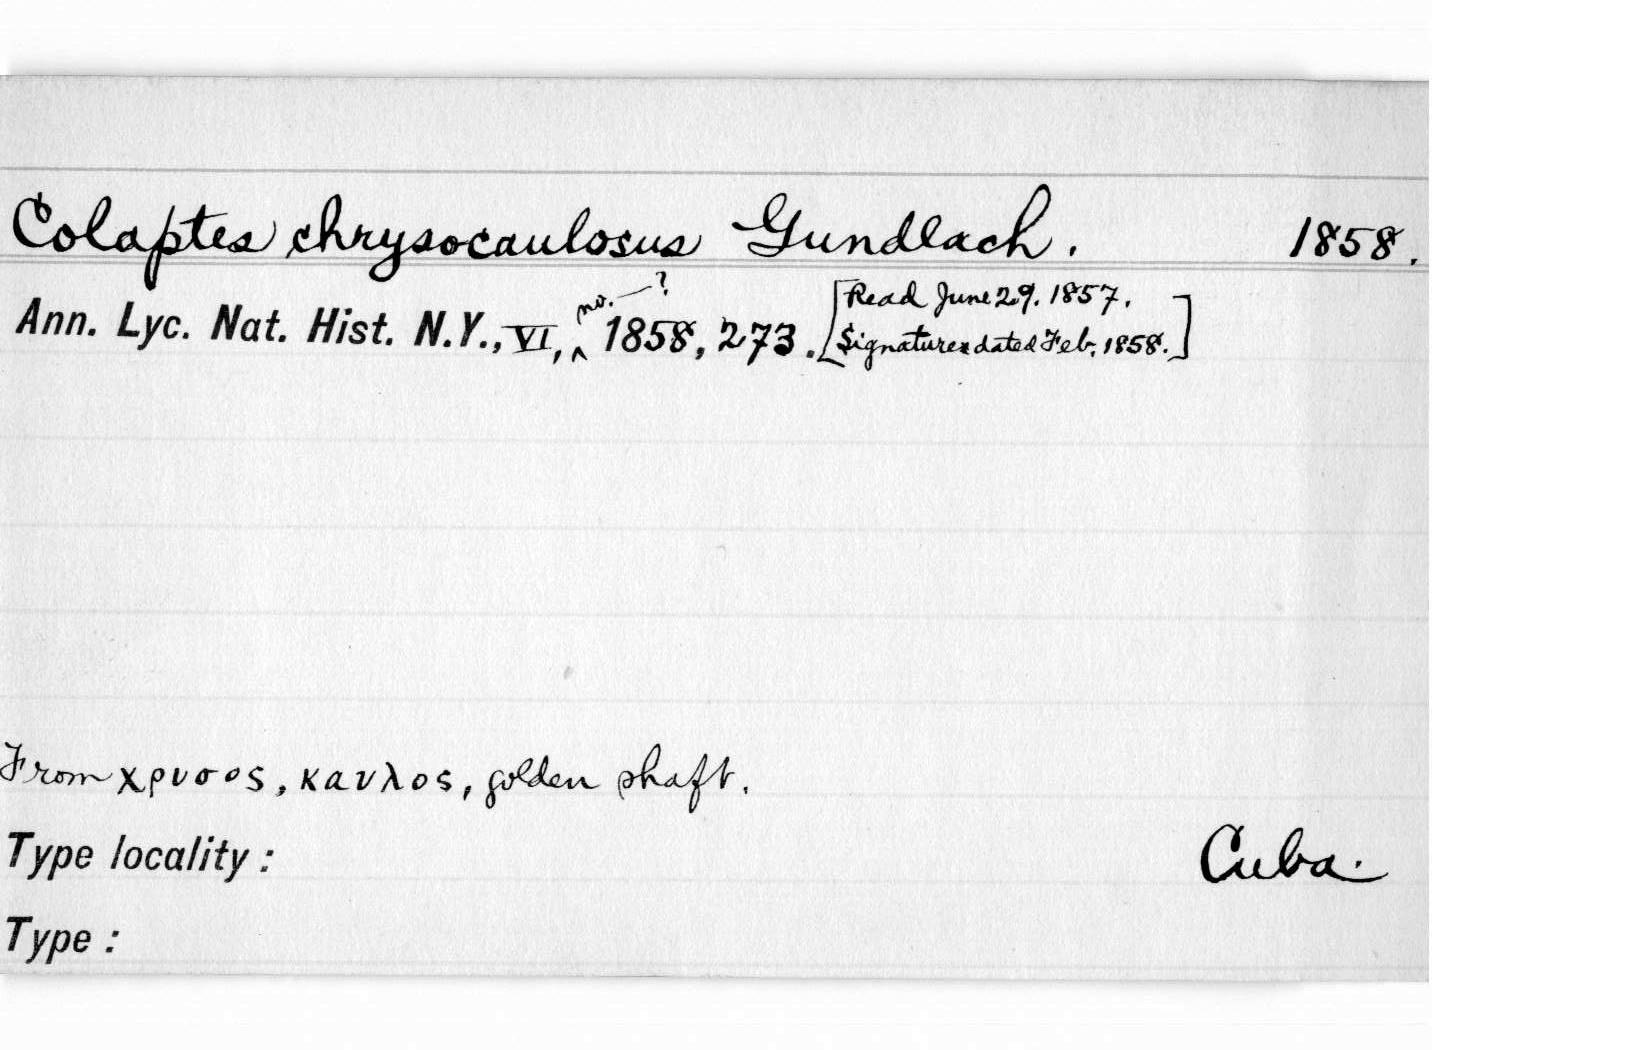 Colaptes chrysocaulosus Gundlach. 1858.
no. —?
Ann. Lyc. Nat. Hist. N.Y., VI, ^ 1858, 273. [Read June 29. 1857.
Signatures dated Feb. 1858.]
From χρυσος, καυλος, golden shaft.
Type locality : Cuba.
Type :